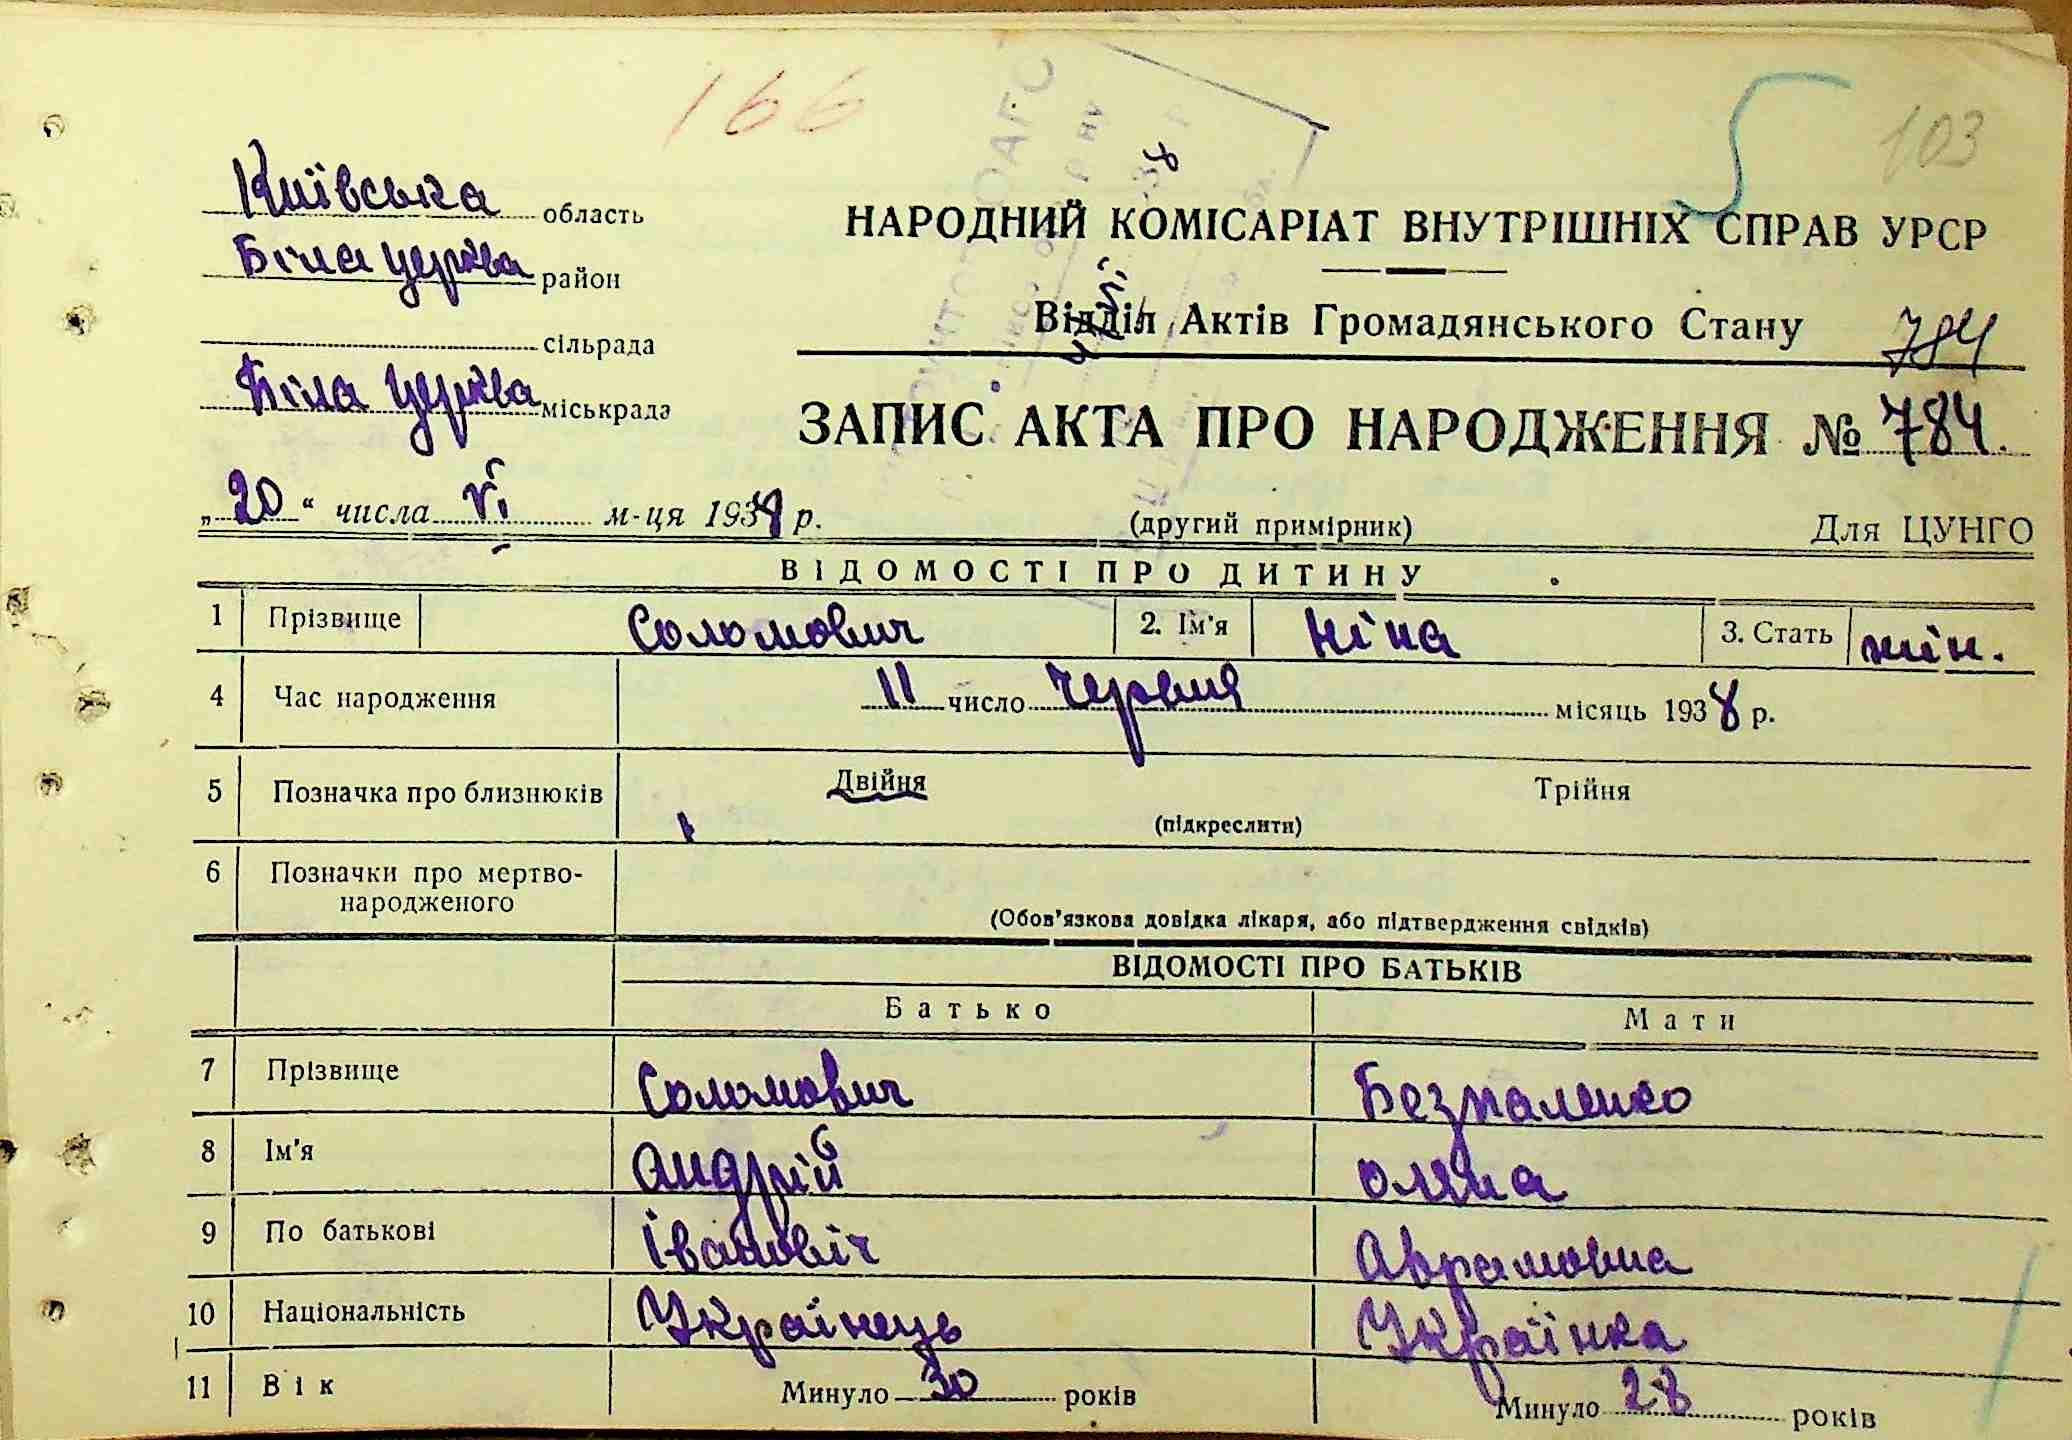 166
103
Київська область
Біла Церква район
сільрада
Біла Церква міськрада
НАРОДНИЙ КОМІСАРІАТ ВНУТРІШНІХ СПРАВ УРСР
Відділ Актів Громадянського Стану 784
ЗАПИС АКТА ПРО НАРОДЖЕННЯ № 784.
„20“ числа VI м-ця 1938 р. (другий примірник) Для ЦУНГО
ВІДОМОСТІ ПРО ДИТИНУ
1 Прізвище Соломович 2. Ім'я Ніна 3. Стать жін.
4 Час народження 11 число Червня місяць 1938 р.
5 Позначка про близнюків Двійня Трійня
(підкреслити)
6 Позначки про мертво-
народженого
(Обов'язкова довідка лікаря, або підтвердження свідків)
ВІДОМОСТІ ПРО БАТЬКІВ
Батько Мати
7 Прізвище Соломович Безпаленко
8 Ім'я Андрій Оляна
9 По батькові Івановіч Аврамовна
10 Національність Українець Українка
11 Вік Минуло 30 років Минуло 28 років